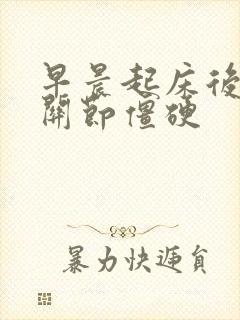 早晨起床後
關節僵硬
暴力快遞員